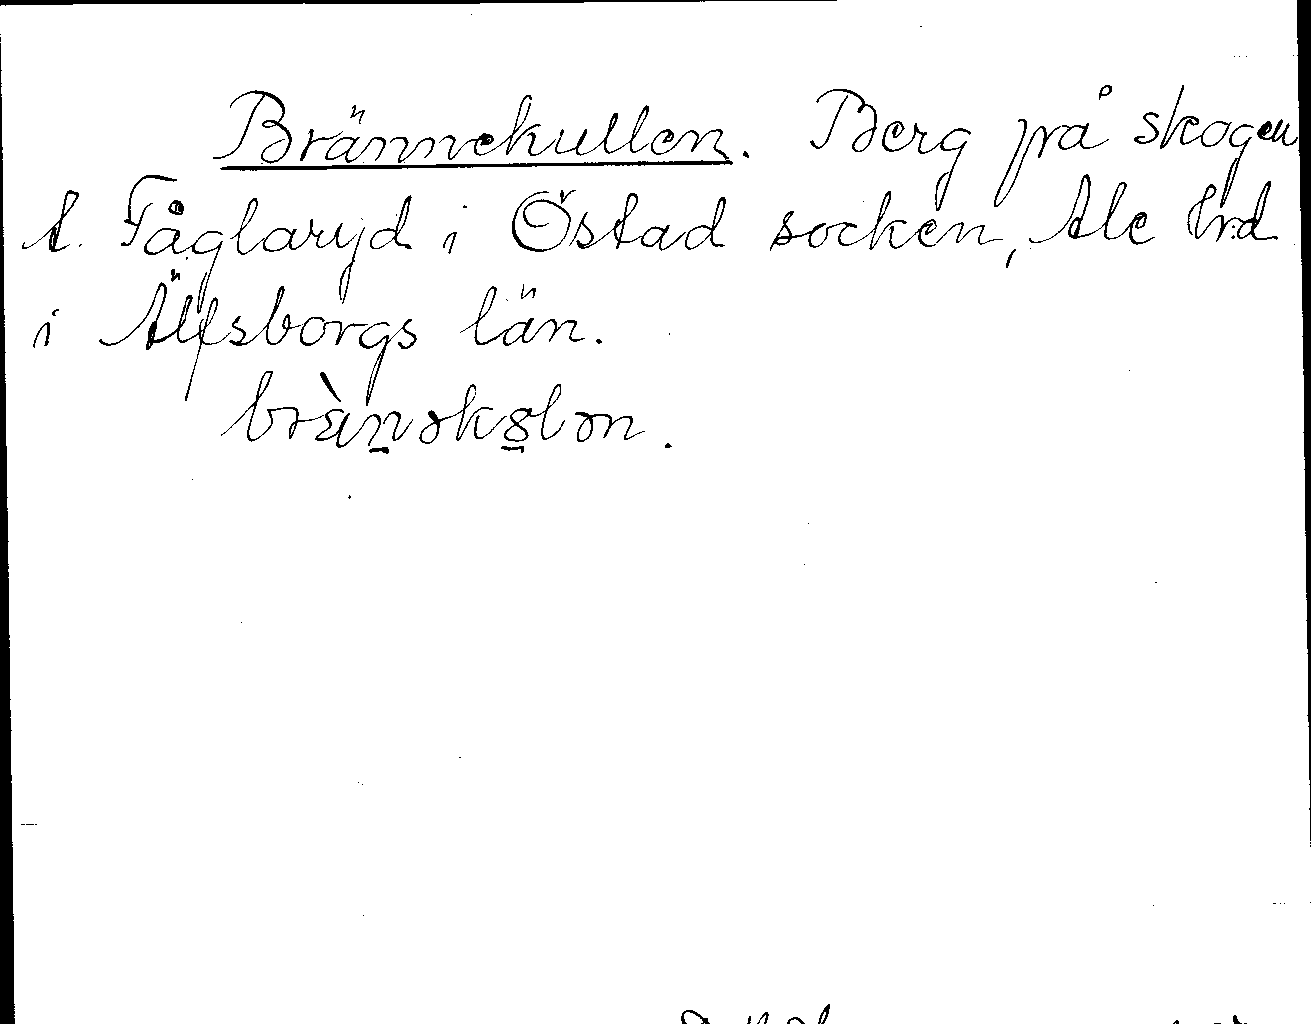 Brännekullen. Berg på skogen
t. Fåglaryd i Östad socken, Ale hrd
i Älfsborgs län.
brànəkslən.